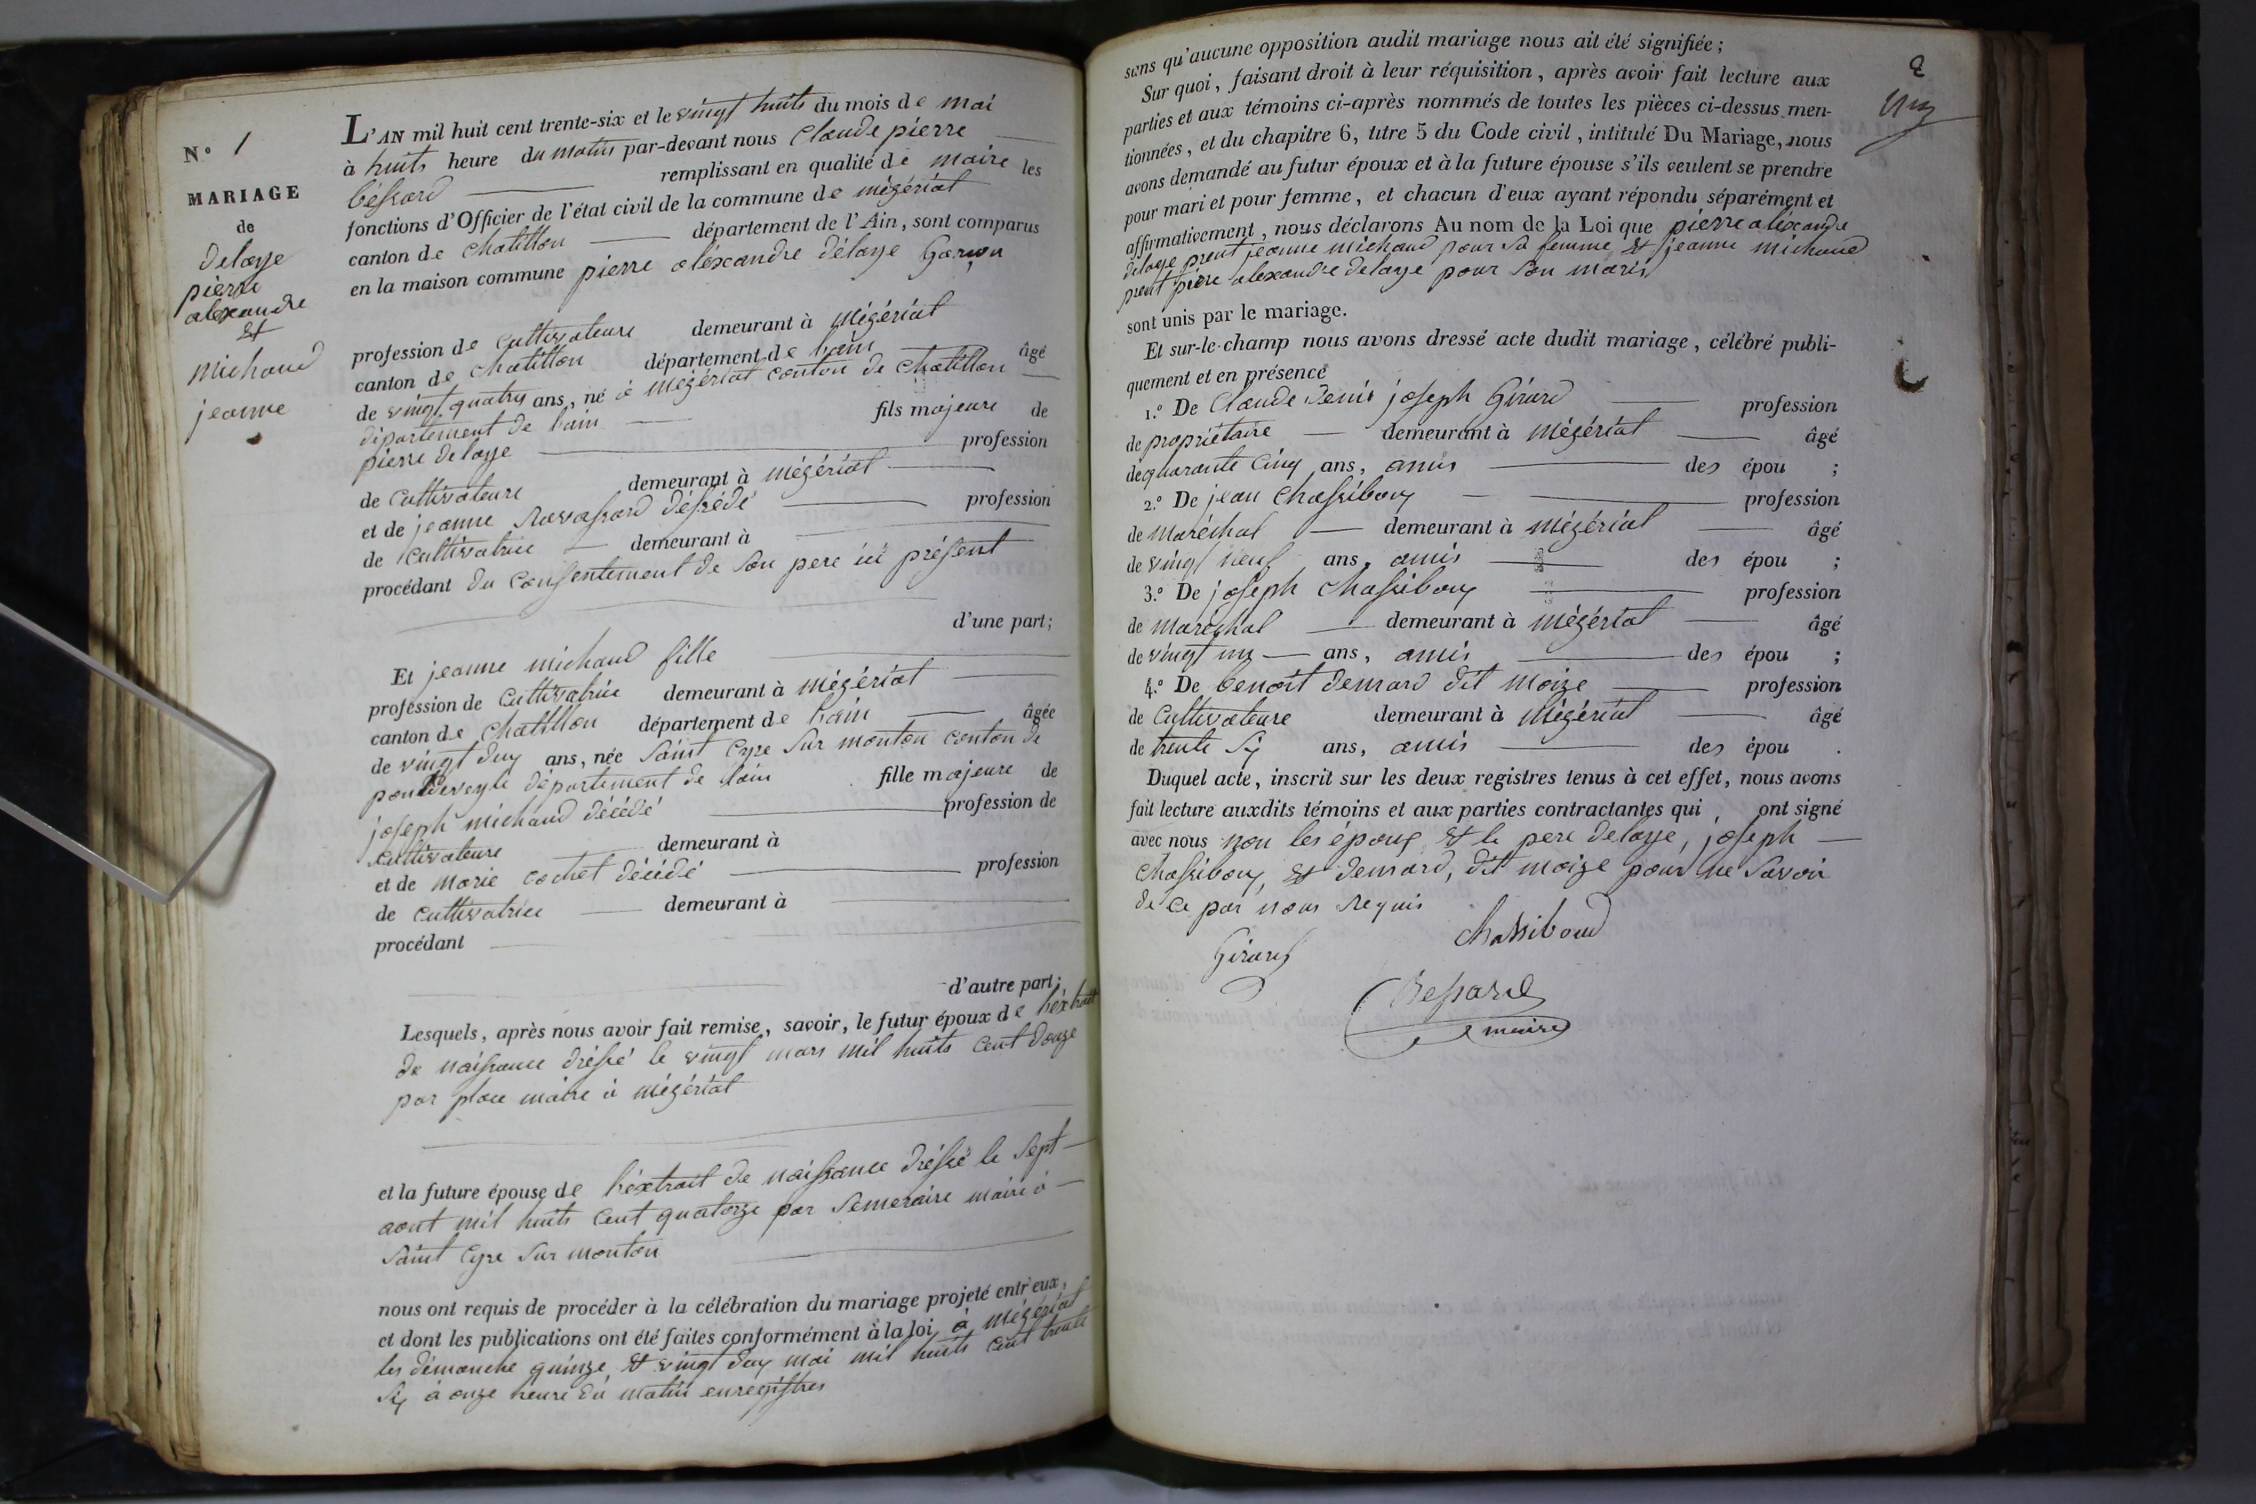 N.° 1
MARIAGE
de
delaye
pierre
alexandre
et
michaud
jeanne
L'AN mil huit cent trente-six et le vingt huits du mois de mai
à huits heure du matin par-devant nous Claude pierre
béssard remplissant en qualité de maire les
fonctions d'Officier de l'état civil de la commune de mézériat
canton de chatillon département de l'Ain, sont comparus
en la maison commune pierre aléxandre délaye Garçon
profession de cultivateure demeurant à mézériat
canton de chatillon département de lain âgé
de vingt quatre ans, né à mézériat canton de chatillon
département de lain fils majeure de
pierre delaye profession
de cultivateure demeurant à mézériat
et de jeanne Ravassard désédé profession
de cultivatrice demeurant à
procédant du consentement de son pere ici présent
d'une part;
Et jeanne michaud fille
profession de cultivatrice demeurant à mézériat
canton de chatillon département de lain âgée
de vingt duy ans, née Saint Cyre Sur monton canton de
pondeveyle département de lain fille majeure de
joseph michaud décédé profession de
cultivateure demeurant à
et de marie cochet décédé profession
de cultivatrice demeurant à
procédant
d'autre part;
Lesquels, après nous avoir fait remise, savoir, le futur époux de léxtrait
de naissance dréssé le vingt mars mil huits cent douze
par place maire à mézériat
et la future épouse de léxtrait de naissance dréssé le sept
aout mil huits cent quatorze par semeraire maire à
saint Cyre sur monton
nous ont requis de procéder à la célébration du mariage projeté entr'eux,
et dont les publications ont été faites conformément à la loi à mézériat
les démanche quinze et vingt duy mai mil huits cent trente
siy à onze heure du matin enregistres
2
sans qu'aucune opposition audit mariage nous ait été signifiée;
Sur quoi, faisant droit à leur réquisition, après avoir fait lecture aux
parties et aux témoins ci-après nommés de toutes les pièces ci-dessus men-
tionnées, et du chapitre 6, titre 5 du Code civil, intitulé Du Mariage, nous
avons demandé au futur époux et à la future épouse s'ils veulent se prendre
pour mari et pour femme, et chacun d'eux ayant répondu séparément et
affirmativement, nous déclarons Au nom de la Loi que pierre aléxandre
delaye prent jeanne michaud pour sa femme et jeanne michaud
prent piere alexandre delaye pour son maris
sont unis par le mariage.
Et sur-le-champ nous avons dressé acte dudit mariage, célébré publi-
quement et en présence
1.° De Claude denis joseph Girard profession
de propriétaire demeurant à mézériat âgé
de quarante cinq ans, amis des épou ;
2.° De jean Chassibouy profession
de maréchal demeurant à mézériat âgé
de vingt neuf ans, amis des épou ;
3.° De joseph Chassibouy profession
de maréchal demeurant à mézériat âgé
de vingt un ans, amis des épou ;
4.° De benoit demard dit moize profession
de Cultivateure demeurant à Mézériat âgé
de trente siy ans, amis des épou .
Duquel acte, inscrit sur les deux registres tenus à cet effet, nous avons
fait lecture auxdits témoins et aux parties contractantes qui ont signé
avec nous non les épouy et le pere delaye, joseph
Chassibouy, et demard, dit moize pour ne savoir
de ce par nous Requis
Girard
Chassiboud
Bessard
maire